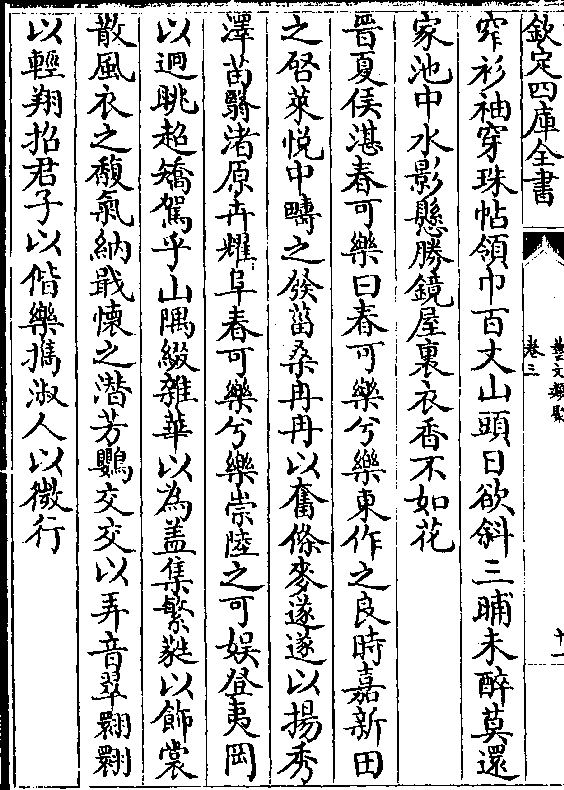 欽定四庫全書
藝文類聚
卷三
十一
窄衫袖穿珠帖領巾百丈山頭日欲斜三晡未醉莫還
家池中水影懸勝鏡屋裏衣香不如花
晉夏侯湛春可樂曰春可樂兮樂東作之良時嘉新田
之啓萊悦中疇之發菑桑冉冉以奮條麥遂遂以揚秀
澤苗翳渚原卉耀阜春可樂兮樂崇陸之可娯登夷岡
以迥眺超矯駕乎山隅綴雜華以為盖集繁蕤以飾裳
散風衣之馥氣納戢懷之潛芳鸚交交以弄音翠翾翾
以輕翔招君子以偕樂擕淑人以微行